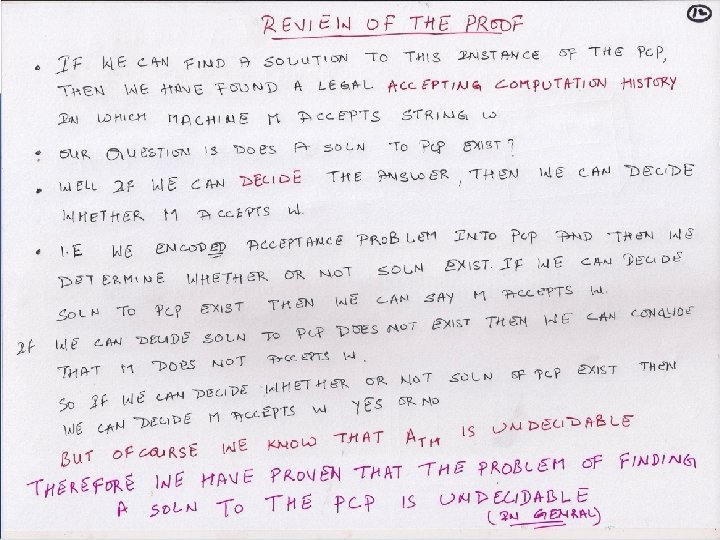 REVIEIW OF THE PROOF
12
• IF WE CAN FIND A SOLUTION TO THIS INSTANCE OF THE PCP,
THEN WE HAVE FOUND A LEGAL ACCEPTING COMPUTATION HISTORY
IN WHICH MACHINE M ACCEPTS STRING W
• OUR QUESTION IS DOES A SOLN TO PCP EXIST?
• WELL IF WE CAN DECIDE THE ANSWER, THEN WE CAN DECIDE
WHETHER M ACCEPTS W.
• I.E WE ENCODED ACCEPTANCE PROBLEM INTO PCP AND THEN WE
DETERMINE WHETHER OR NOT SOLN EXIST. IF WE CAN DECIDE
SOLN TO PCP EXIST THEN WE CAN SAY M ACCEPTS W.
If WE CAN DECIDE SOLN TO PCP DOES NOT EXIST THEN WE CAN CONCLUDE
THAT M DOES NOT ACCEPTS W.
SO IF WE CAN DECIDE WHETHER OR NOT SOLN OF PCP EXIST THEN
WE CAN DECIDE M ACCEPTS W YES OR NO
BUT OFCOURSE WE KNOW THAT ATM IS UNDECIDABLE
THEREFORE WE HAVE PROVEN THAT THE PROBLEM OF FINDING
A SOLN TO THE PCP IS UNDECIDABLE
(IN GENRAL)